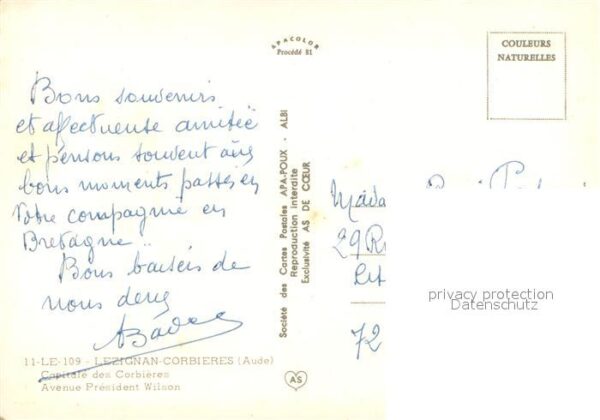 APACOLOR
Procédé 81
COULEURS
NATURELLES
Bons souvenirs
et affectueuse amitié
et pensons souvent aux
bons moments passés en
votre compagnie en
Bretagne..
Bons baisers de
nous deux
Société des Cartes Postales APA-POUX - ALBI
Reproduction interdite
Exclusivité AS DE CŒUR
29 R
72
privacy protection
Datenschutz
11-LE-109 - LEZIGNAN-CORBIERES (Aude)
Capitale des Corbières
Avenue Président Wilson
AS